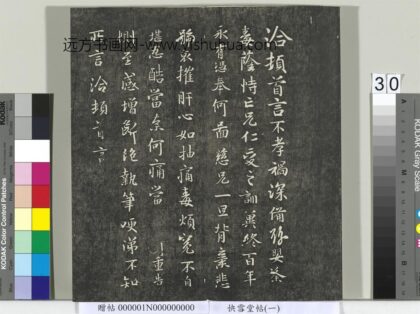 洽頓首言不孝禍深備豹嬰荼
毒蔭恃亡兄仁愛之訓冀終百年
永有憑奉何圖慈兄一旦背棄悲
號哀摧肝心如抽痛毒煩冤不自
堪忍酷當奈何痛當重告
惻至感增斷絕執筆哽涕不知
所言洽頓首言
远方书画网-www.yishuhua.com
30
KODAK Color Control Patches
KODAK Gray Scale
贈帖 000001N000000000
快雪堂帖(一)